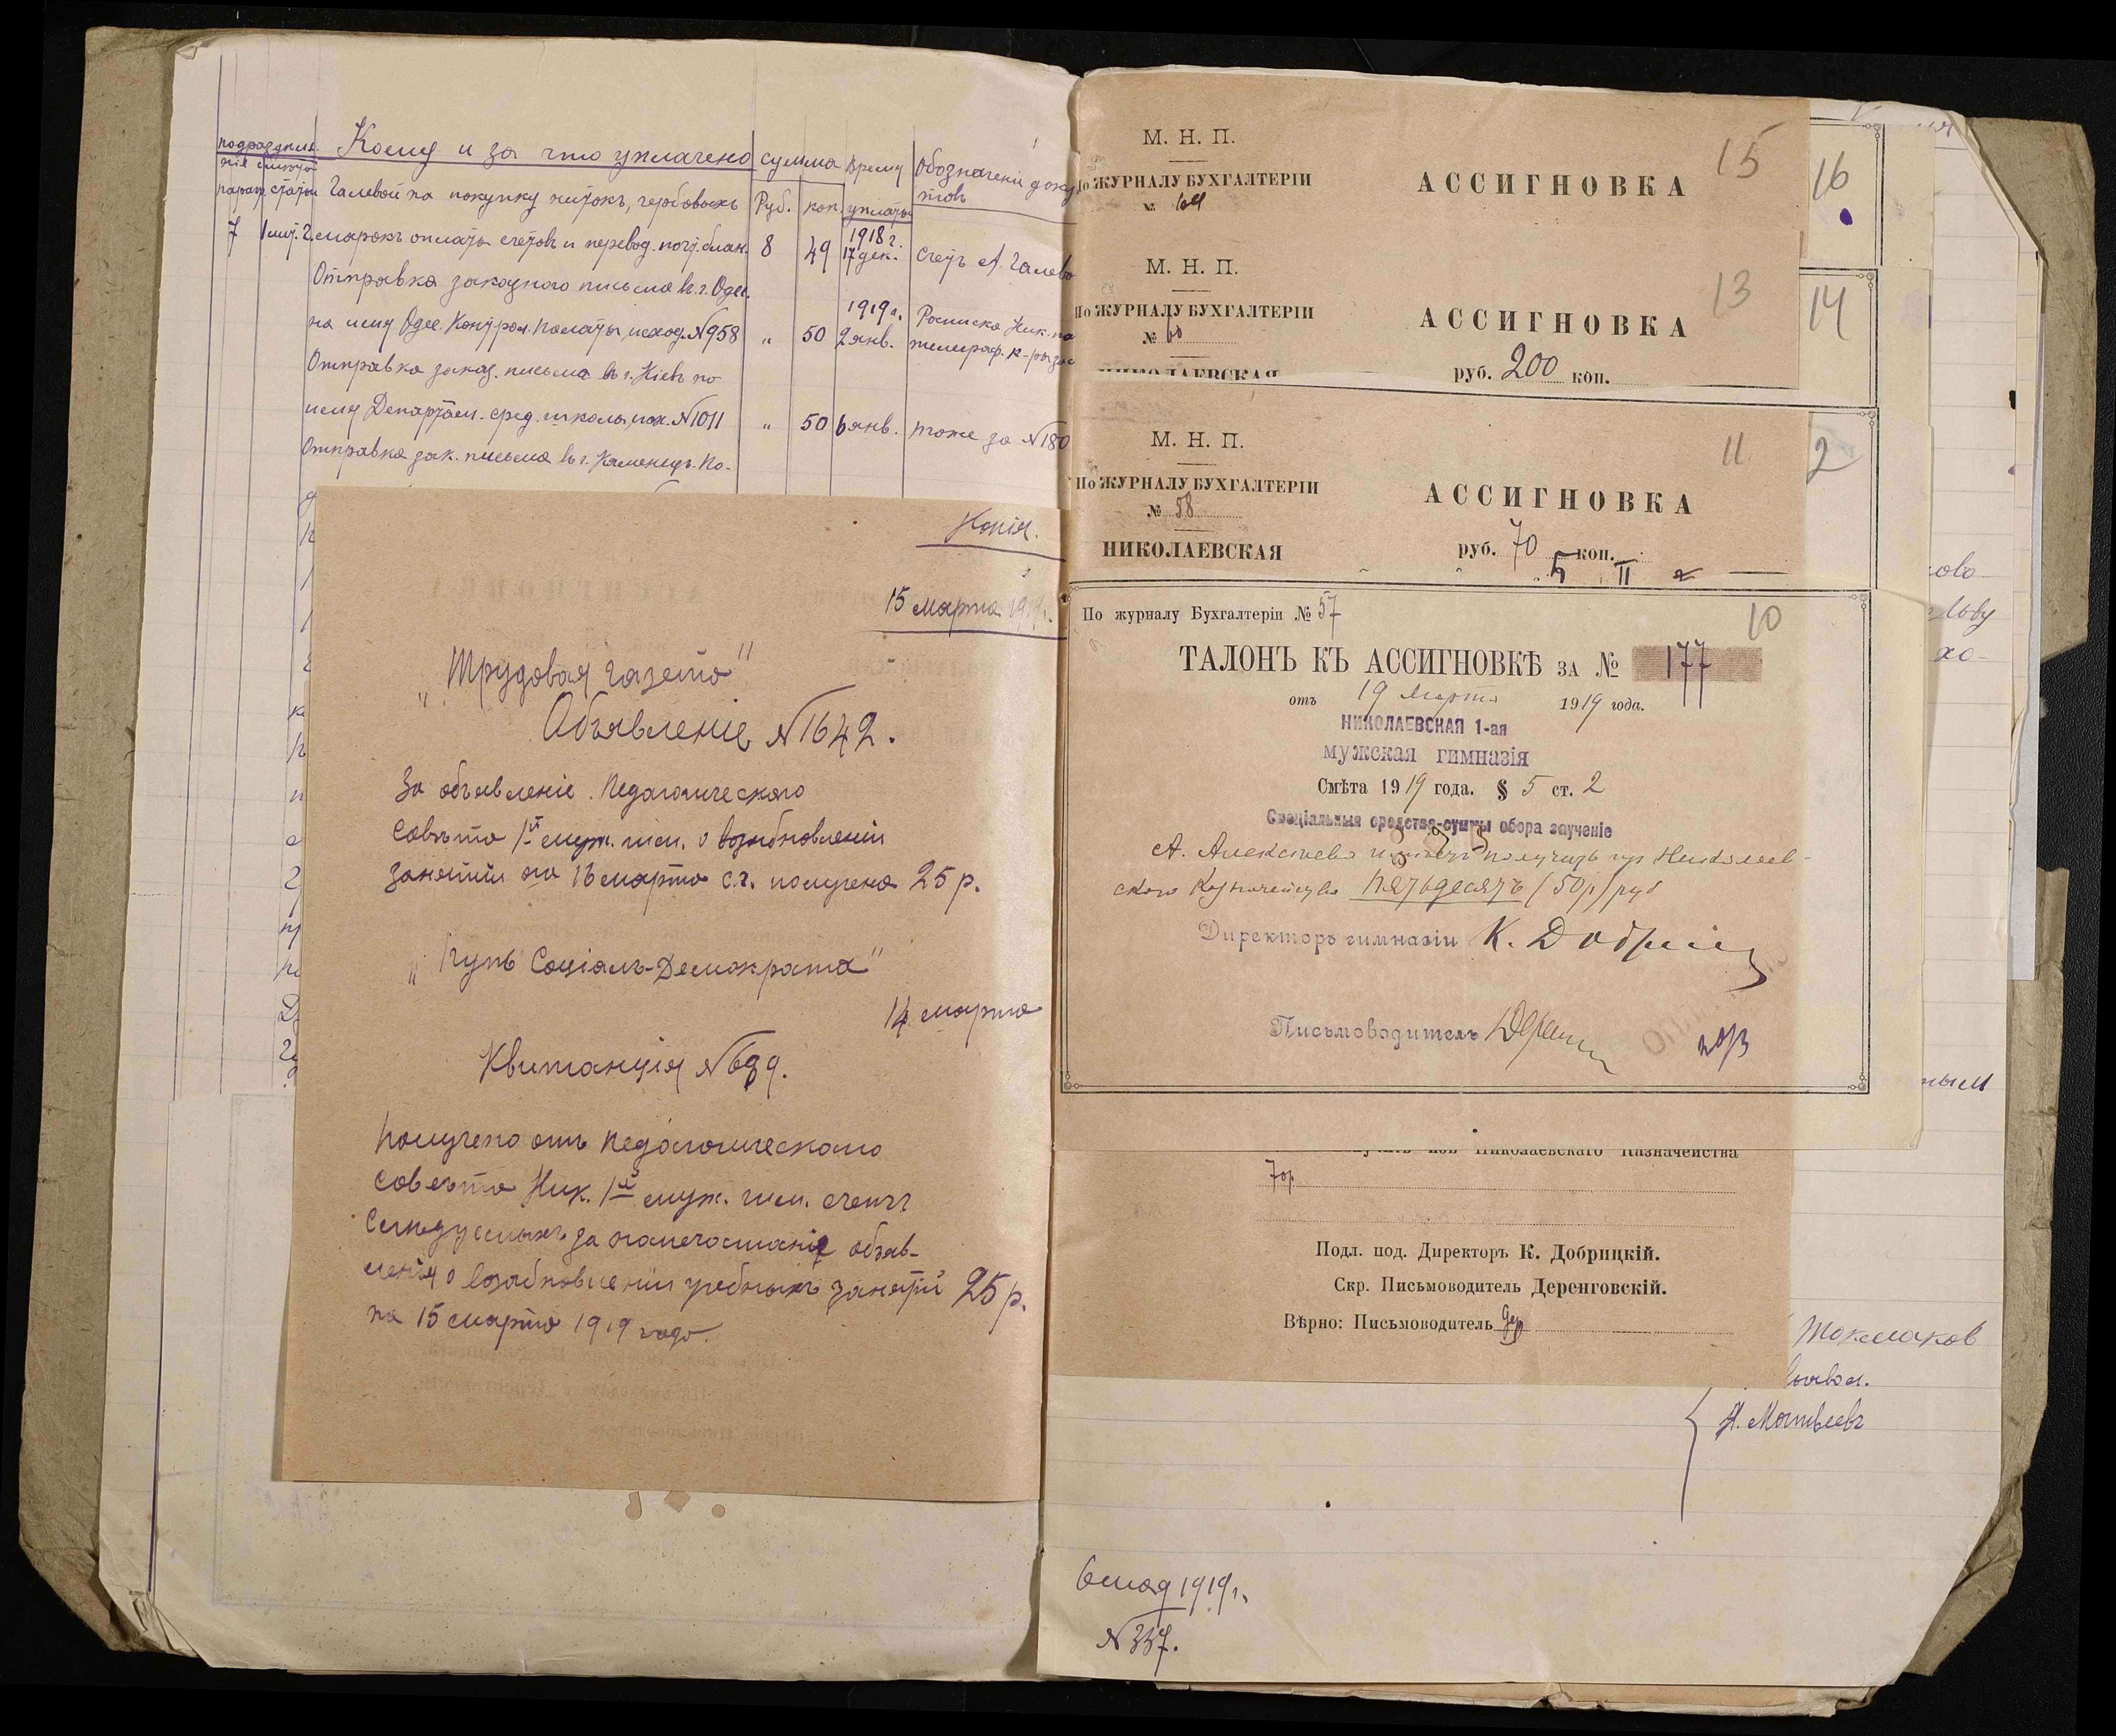 подраздѣле-
нія смѣты
параг. статьи
Кому и за что уплачено
сумма
Руб.
коп.
Время
уплаты
Обозначеніе доку
товъ
Галевой на покупку нитокъ, гербовыхъ
7
марокъ оплаты счетовъ и перевод. почт. блан.
8
49
1918 г.
17 дек.
Счетъ А. Галево
Отправка заказного письма въ г. Одес.
на имя Одес. Контрол. Палаты, исход. №958
„
50
1919 г.
2 янв.
Росписка Ник. по
телеграф. к-ры за
Отправка заказ. письма въ г. Кіевъ по
имя Департам. сред. школы, исх. №1011
„
50
6 янв.
тоже за №180
Отправка зак. письма въ г. Каменецъ-По-
Копія.
15 марта 1919 г.
„Трудовая газета"
Объявленіе №1642.
За объявленіе Педагогическаго
Совѣта 1й муж. гим. о возобновленіи
занятій на 16 марта с.г. получена 25 р.
„Путь Соціалъ-Демократа"
14 марта
Квитанція №689.
Получено отъ Педагогическаго
Совѣта Ник. 1й муж. гим. счетъ
слѣдуемыхъ за напечатаніе объяв-
ленія о возобновленіи учебныхъ занятій 25 р.
на 15 марта 1919 года.
М. Н. П.
По ЖУРНАЛУ БУХГАЛТЕРІИ
№
АССИГНОВКА
15
16
М. Н. П.
По ЖУРНАЛУ БУХГАЛТЕРІИ
№ 60
НИКОЛАЕВСКАЯ
АССИГНОВКА
руб. 200 коп.
13
14
М. Н. П.
По ЖУРНАЛУ БУХГАЛТЕРІИ
№ 58
НИКОЛАЕВСКАЯ
АССИГНОВКА
руб. 70 коп.
11
2
По журналу Бухгалтеріи № 57
10
ТАЛОНЪ КЪ АССИГНОВКѢ ЗА № 177
отъ 19 марта 1919 года.
НИКОЛАЕВСКАЯ 1-ая
мужская гимназія
Смѣта 1919 года. § 5 ст. 2
Спеціальныя средства-суммы сбора заученіе
А. Алексѣева имѣетъ получить изъ Николаев-
скаго Казначейства пятьдесятъ (50р) руб
Директоръ гимназіи К. Добрицкій
Письмоводитель
изъ Николаевскаго Казначейства
70р.
Подл. под. Директоръ К. Добрицкій.
Скр. Письмоводитель Деренговскій.
Вѣрно: Письмоводитель
Токмаков
Н. Матвѣевъ
6 мая 1919 г.
№337.